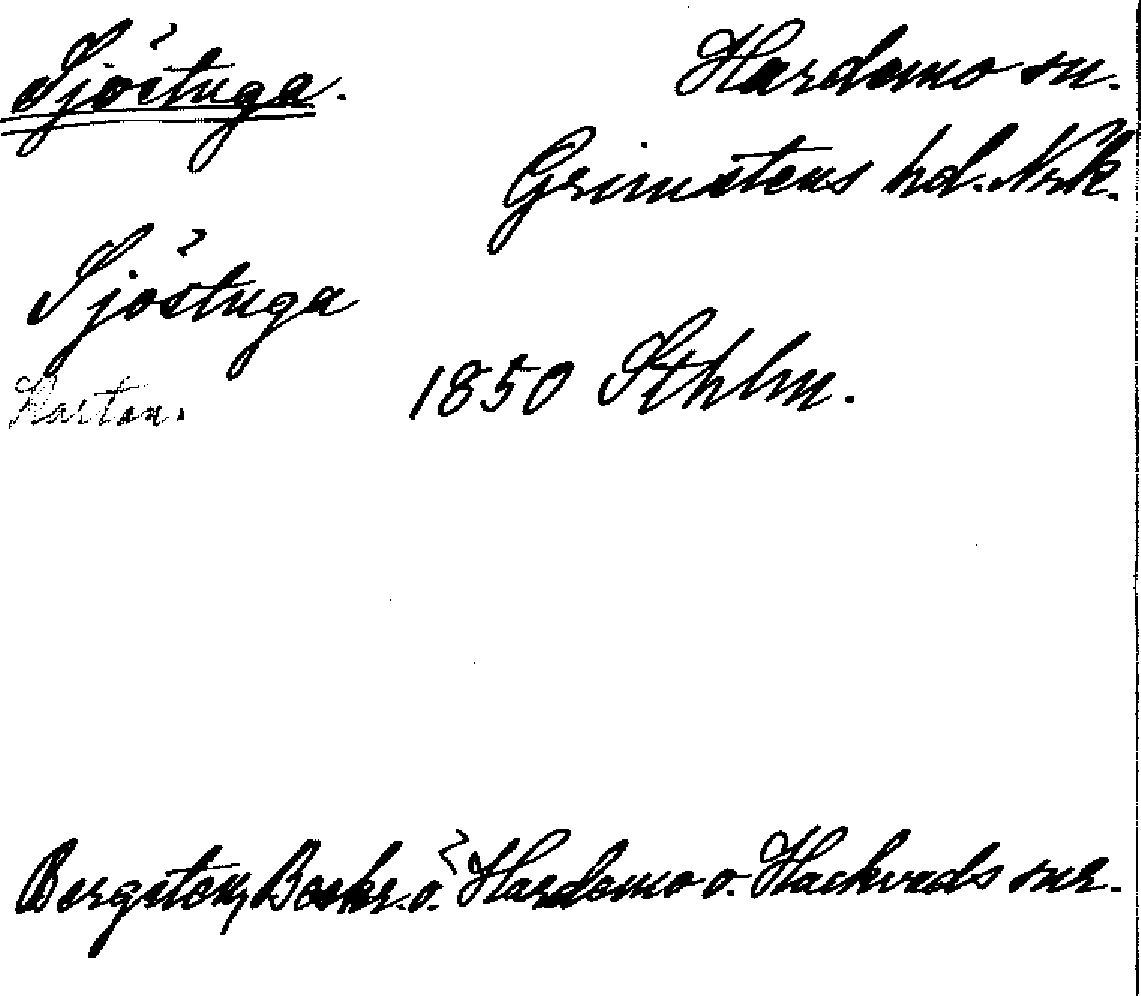 Sjöstuga.
Hardemo sn.
Grimstens hd. Nrk.
Sjöstuga
Kartan.
1850 Sthlm.
Bergsten, Beskr. ö. Hardemo o. Hackvads snr.